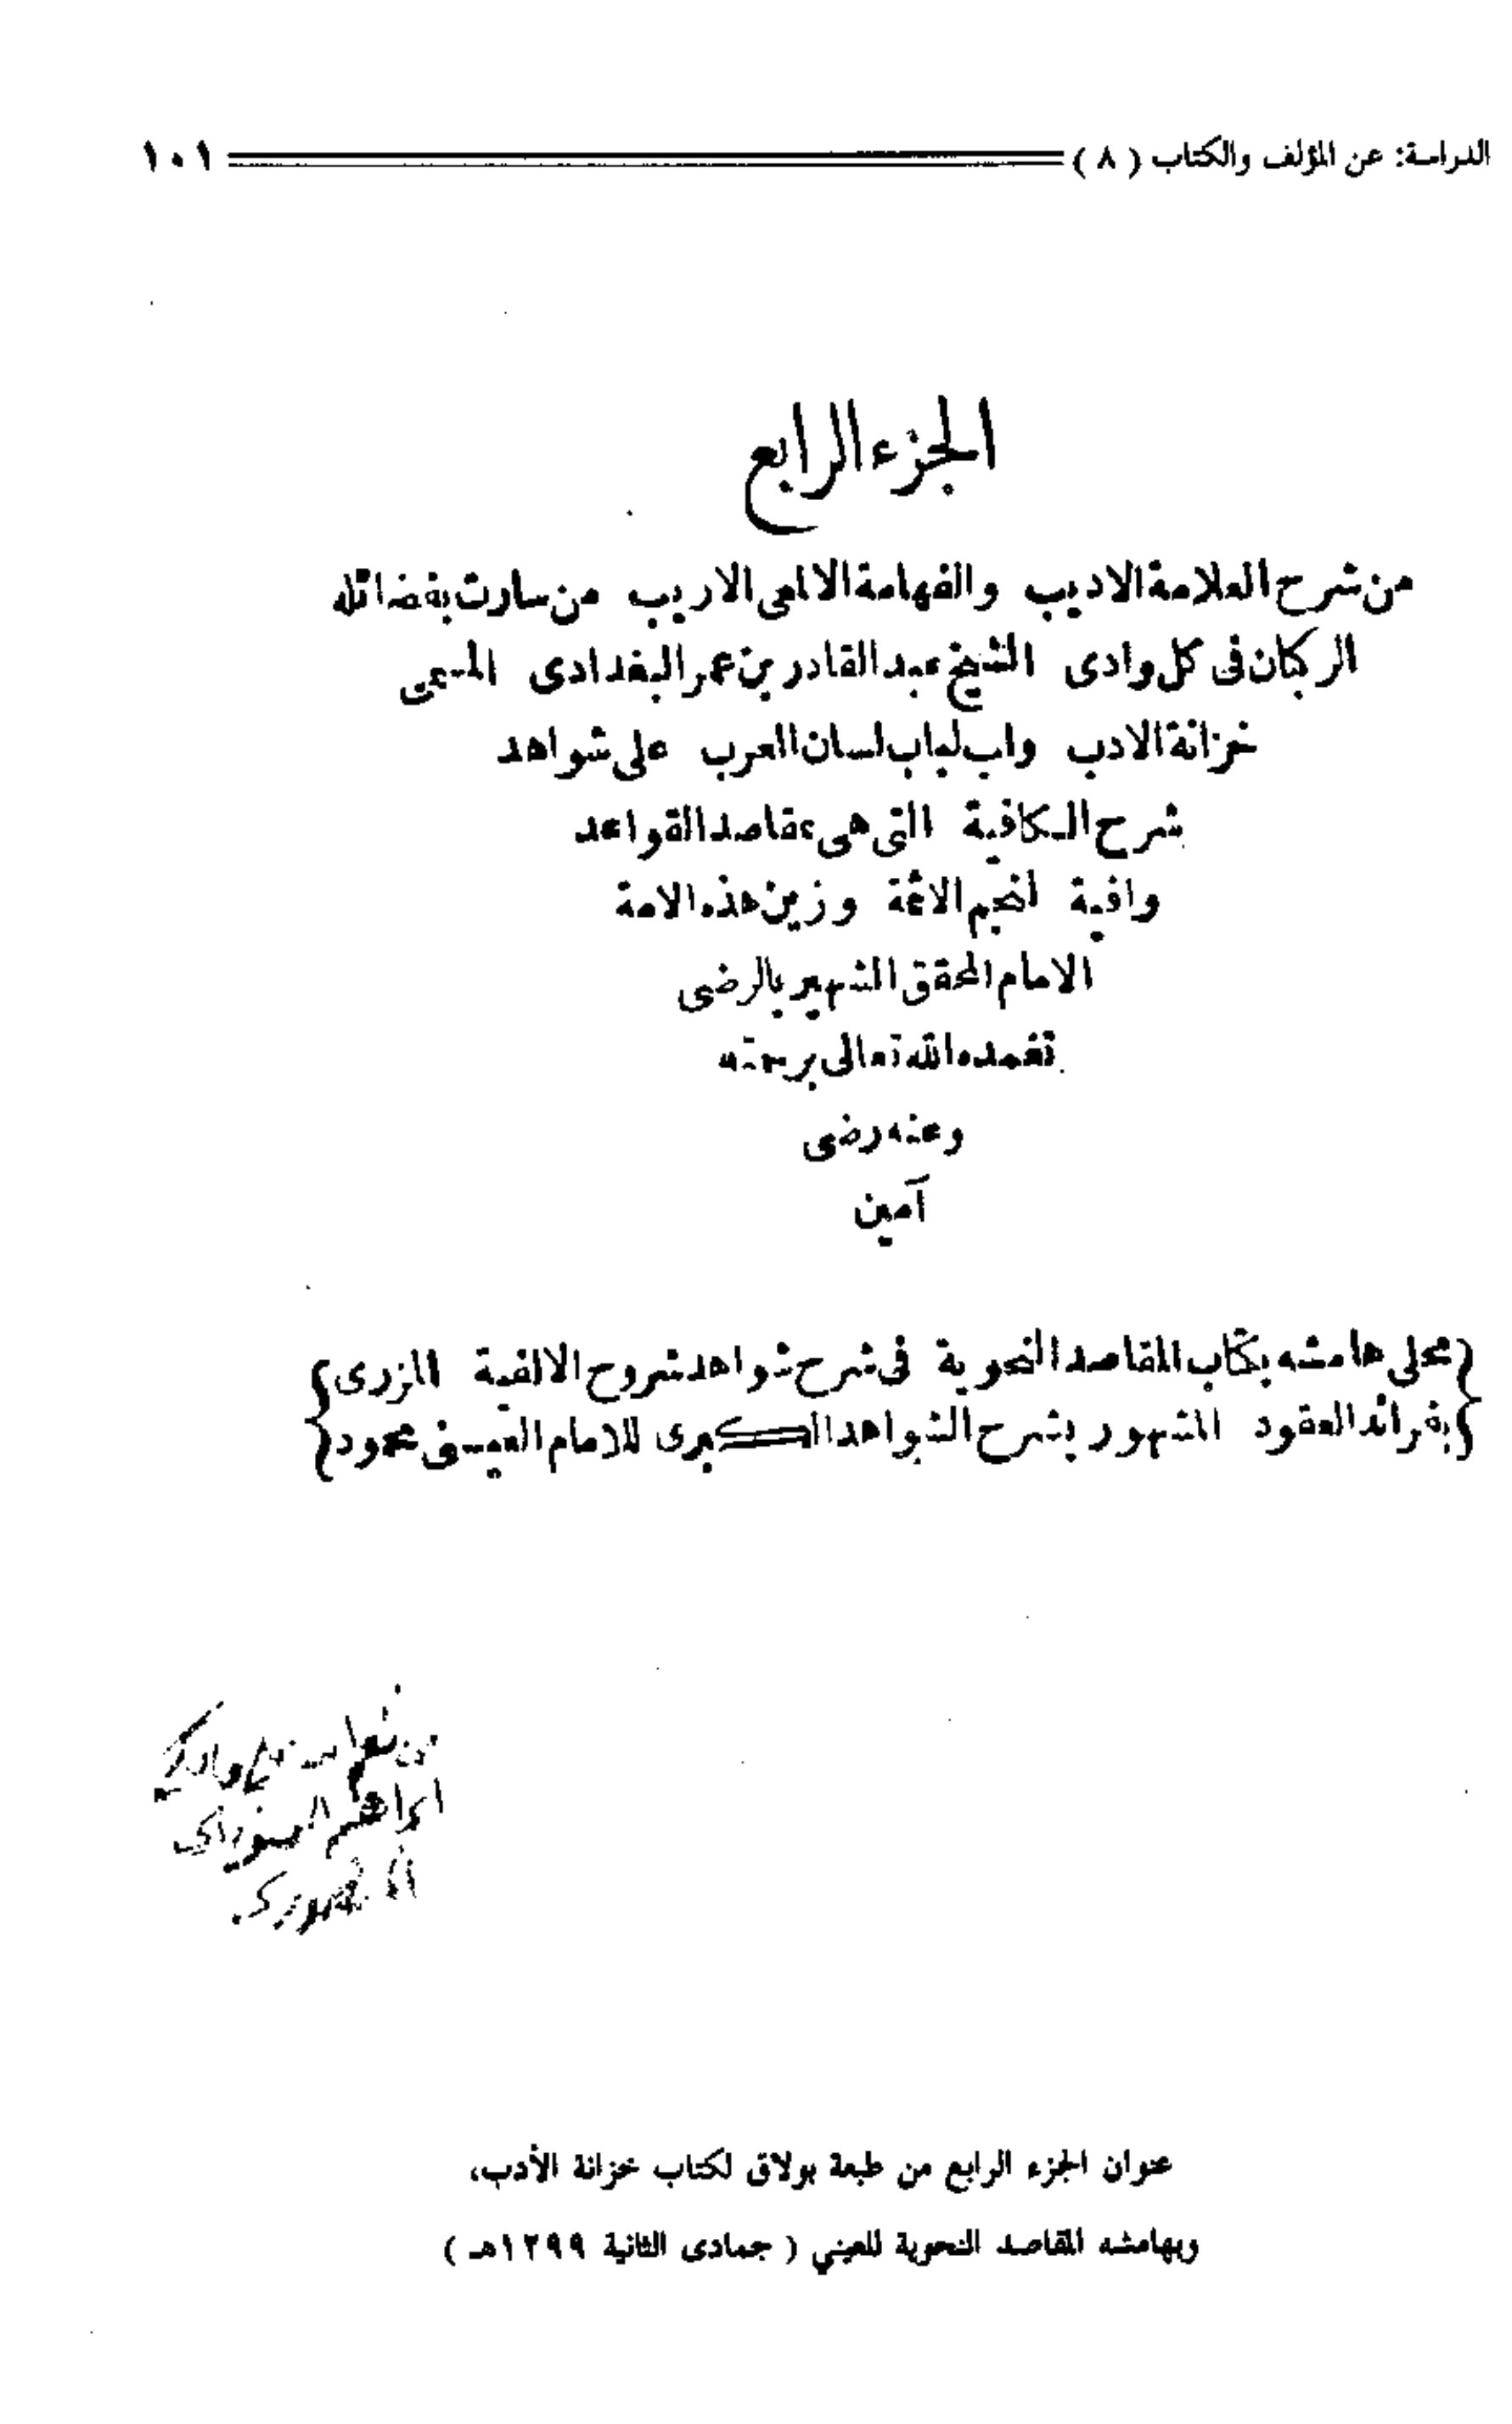 الدراسة: عن المؤلف والكتاب ( ٨ ) ١٠١
الجزء الرابع
من شرح العلامة الاديب والفهامة الالمعى الاريب من سارت بفضائله
الركبان فى كل وادى الشيخ عبد القادر بن عمر البغدادى المسمى
خزانة الادب ولب لباب لسان العرب على شواهد
شرح الكافية التى هى بمقاصد القواعد
وافية لنجم الائمة وزين هذه الامة
الامام المحقق الشهير بالرضى
تغمده الله تعالى برحمته
وعنه رضى
آمين
{محلى هامشه بكتاب المقاصد النحوية فى شرح شواهد شروح الالفية المزرى}
{بفرائد العقود المشهور بشرح الشواهد الكبرى للامام العينى محمود}
عنوان الجزء الرابع من طبعة بولاق لكتاب خزانة الأدب،
وبهامشه المقاصد النحوية للعيني ( جمادى الثانية ١٢٩٩هـ )